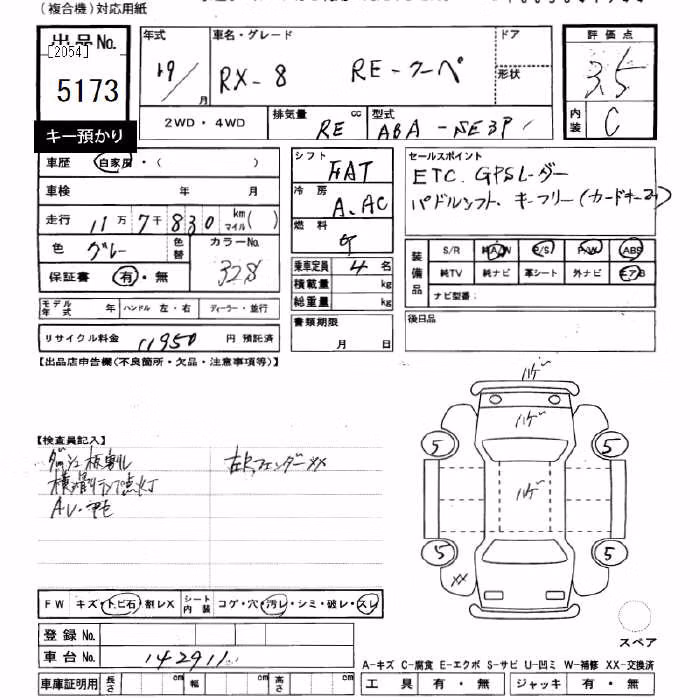 (複合機)対応用紙
出品No.
[2054]
5173
キー預かり
年式
19/
月
車名・グレード
RX-8 RE-クーペ
ドア
形状
2WD・4WD
排気量
cc
RE
型式
ABA-SE3P
評価点
3.5
内装
C
車歴 自家用・( )
車検 年 月
走行 11万7千830 km マイル( )
色 グレー
色替
カラーNo.
32S
保証書 有・無
モデル年式 年 ハンドル 左・右 ディーラー・並行
リサイクル料金 11950 円 預託済
シフト
FAT
冷房
A.AC
燃料
ガ
乗車定員 4 名
積載量 kg
総重量 kg
書類期限
月 日
セールスポイント
ETC. GPSレーダー
パドルシフト. キーフリー(カードキーのみ)
装備品
S/R 純A/W P/S P/W ABS
純TV 純ナビ 革シート 外ナビ エアB
ナビ型番:
後日品
【出品店申告欄(不良箇所・欠品・注意事項等)】
【検査員記入】
左Rフェンダー XX
横滑りランプ点灯
ハゲ
ハゲ
ハゲ
5 5
5 5
XX
FW キズ・トビ石・割レX シート内装 コゲ・穴・汚レ・シミ・破レ・スレ
登録No.
車台No. 142911
車庫証明用 長さ cm 幅 cm 高さ cm
スペア
A-キズ C-腐食 E-エクボ S-サビ U-凹ミ W-補修 XX-交換済
工具 有・無 ジャッキ 有・無